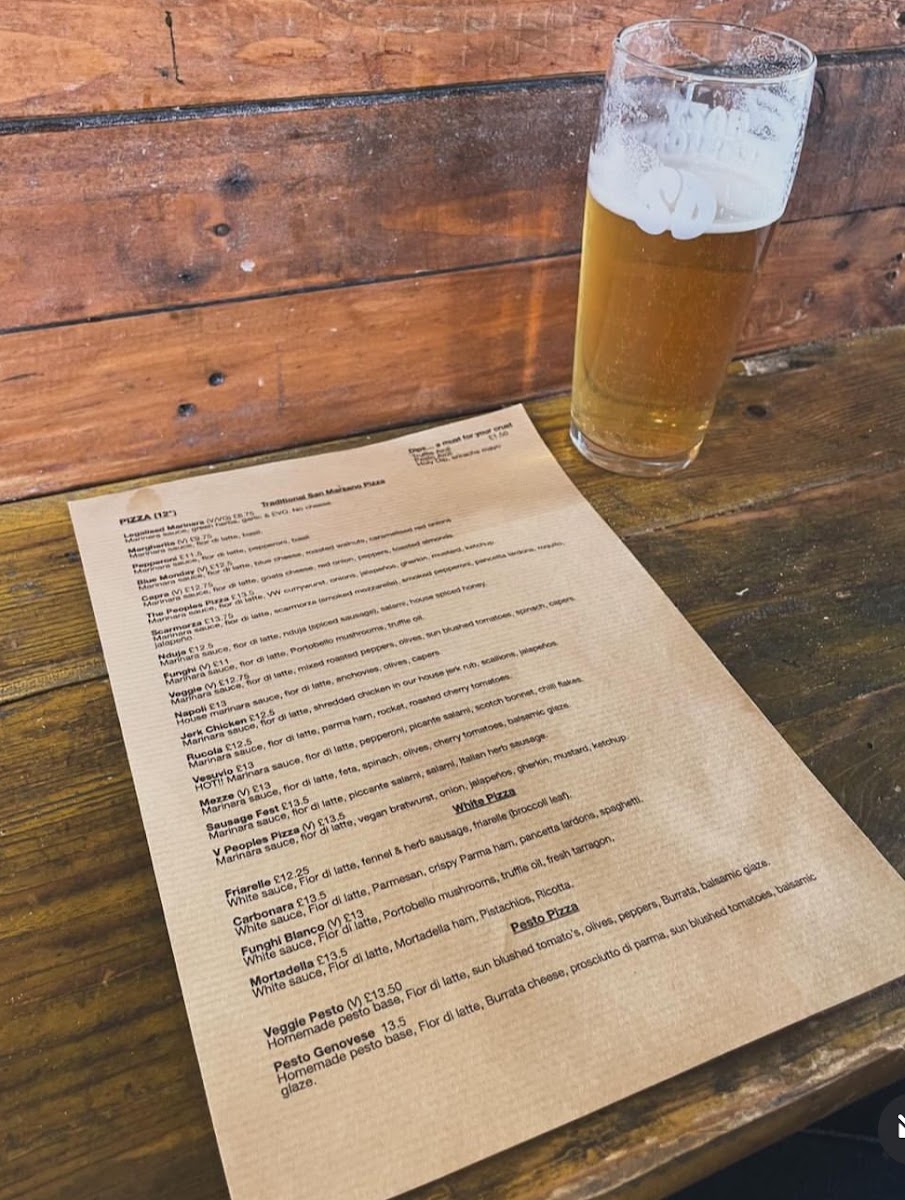 Dips.... a must for your crust
£1.50
Truffle Aioli
Pesto Aioli
Holy Dip, sriracha mayo
Traditional San Marzano Pizza
PIZZA (12")
Legalised Marinara (V/VG) £8.75
Marinara sauce, green herbs, garlic & EVO. No cheese.
Margherita (V) £9.75
Marinara sauce, fior di latte, basil.
Pepperoni £11.5
Marinara sauce, fior di latte, pepperoni, basil.
Blue Monday (V) £12.5
Marinara sauce, fior di latte, blue cheese, roasted walnuts, caramelised red onions
Capra (V) £12.75
Marinara sauce, fior di latte, goats cheese, red onion, peppers, toasted almonds.
The Peoples Pizza £13.5
Marinara sauce, fior di latte, VW currywurst, onions, jalapeños, gherkin, mustard, ketchup.
Scarmorza £13.75
Marinara sauce, fior di latte, scarmorza (smoked mozzarella), smoked pepperoni, pancetta lardons, roquito,
jalapeño.
Nduja £12.5
Marinara sauce, fior di latte, nduja (spiced sausage), salami, house spiced honey.
Funghi (V) £11
Marinara sauce, fior di latte, Portobello mushrooms, truffle oil.
Veggie (V) £12.75
Marinara sauce, fior di latte, mixed roasted peppers, olives, sun blushed tomatoes, spinach, capers.
Napoli £13
House marinara sauce, fior di latte, anchovies, olives, capers.
Jerk Chicken £12.5
Marinara sauce, fior di latte, shredded chicken in our house jerk rub, scallions, jalapeños.
Rucola £12.5
Marinara sauce, fior di latte, parma ham, rocket, roasted cherry tomatoes.
Vesuvio £13
HOT!! Marinara sauce, fior di latte, pepperoni, picante salami, scotch bonnet, chili flakes.
Mezze (V) £13
Marinara sauce, fior di latte, feta, spinach, olives, cherry tomatoes, balsamic glaze.
Sausage Fest £13.5
Marinara sauce, fior di latte, piccante salami, salami, Italian herb sausage.
V Peoples Pizza (V) £13.5
Marinara sauce, fior di latte, vegan bratwurst, onion, jalapeños, gherkin, mustard, ketchup.
White Pizza
Friarelle £12.25
White sauce, Fior di latte, fennel & herb sausage, friarelle (broccoli leaf).
Carbonara £13.5
White sauce, Fior di latte, Parmesan, crispy Parma ham, pancetta lardons, spaghetti.
Funghi Bianco (V) £13
White sauce, Fior di latte, Portobello mushrooms, truffle oil, fresh tarragon.
Mortadella £13.5
White sauce, Fior di latte, Mortadella ham, Pistachios, Ricotta.
Pesto Pizza
Veggie Pesto (V) £13.50
Homemade pesto base, Fior di latte, sun blushed tomato's, olives, peppers, Burrata, balsamic glaze.
Pesto Genovese 13.5
Homemade pesto base, Fior di latte, Burrata cheese, prosciutto di parma, sun blushed tomatoes, balsamic
glaze.